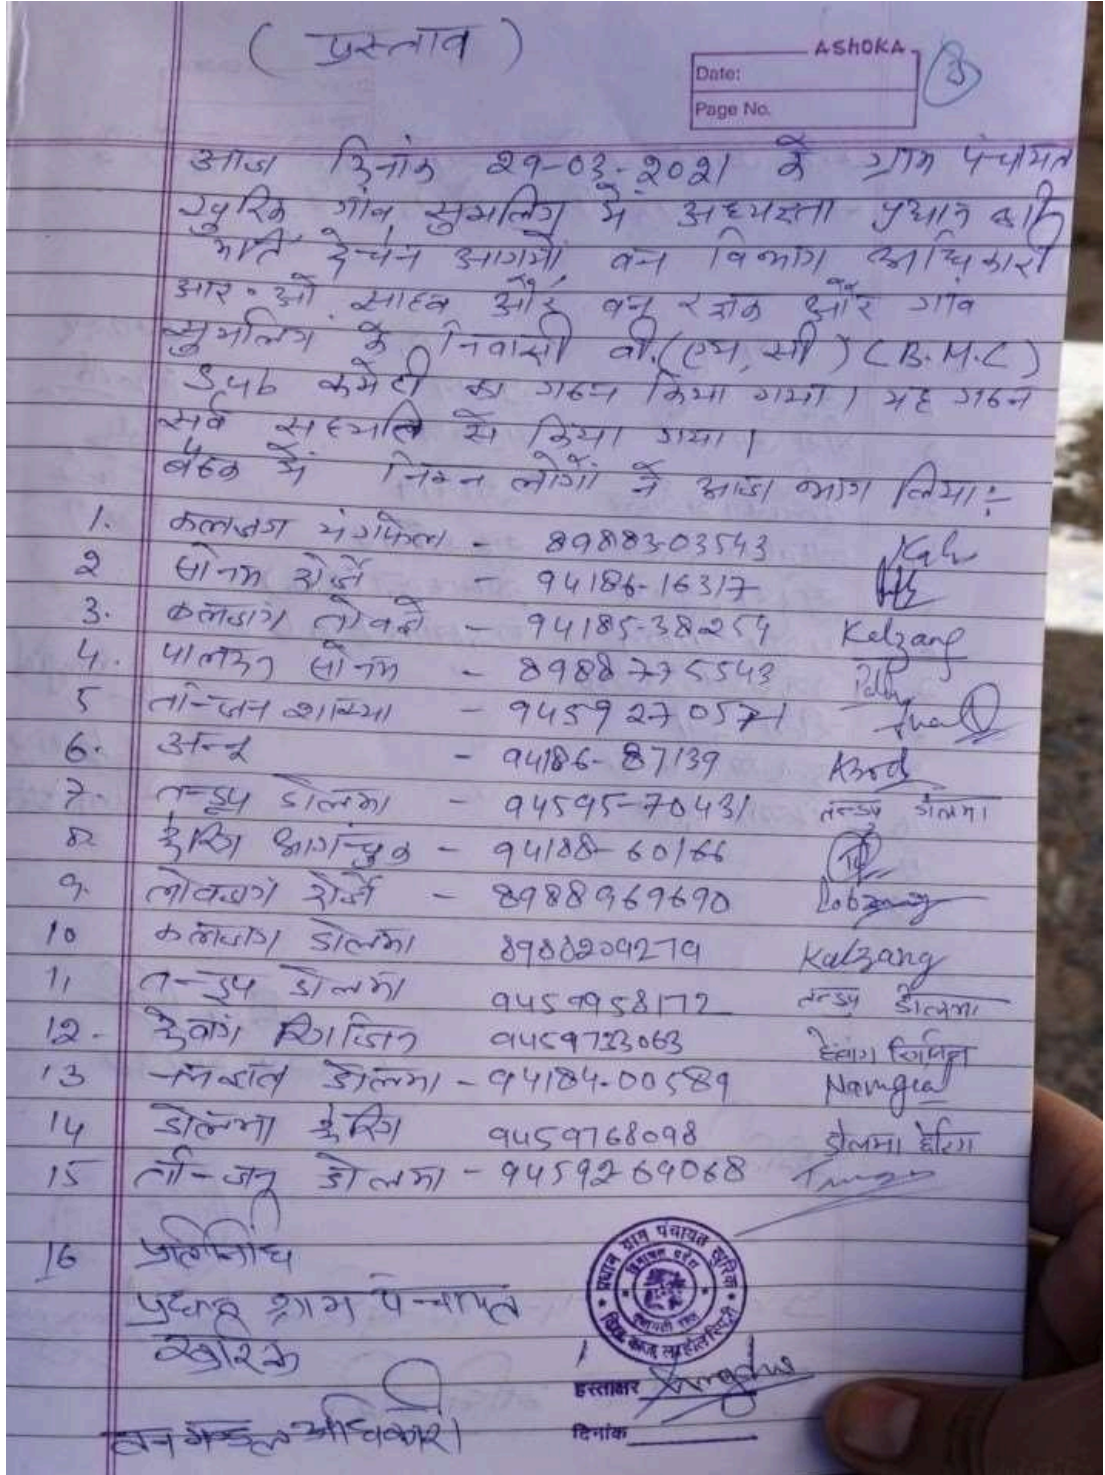 ( प्रस्ताव )
ASHOKA
3
Date:
Page No.
आज दिनांक 29-03-2021 के ग्राम पंचायत
खुरिक गांव सुमलिंग में अध्यक्षता प्रधान
देचेन आगमो वन विभाग अधिकारी
आर॰ ओ. साहब और वन रक्षक और गांव
सुमलिंग के निवासी बी.(एम, सी) (B.M.C)
Sub कमेटी का गठन किया गया। यह गठन
सर्व सहमति से किया गया।
बैठक में निम्न लोगों ने आज भाग लिया:-
1. कलजंग - 8988303543
2 सोनम दोर्जे - 94186-16317
3. कलजंग तोबदे - 94185-38254 Kalzang
4. पालदन सोनम - 8988775543
5 तन्जिन शाक्या - 9459270571
6. अन्नू - 94186-87139
7. तन्डुप डोलमा - 94595-70431 तन्डुप डोलमा
8. छेरिंग आंगचुक - 94188-60166
9. लोबजंग दोर्जे - 8988969690 Lobzang
10 कलजंग डोलमा 8988209279 Kalzang
11 तन्डुप डोलमा 9459958172 तन्डुप डोलमा
12. छेवांग रिगजिन 9459733063 छेवांग रिगजिन
13 नमडोल डोलमा - 94184-00589 Namgial
14 डोलमा छेरिंग 9459768098 डोलमा छेरिंग
15 तन्जिन डोलमा - 9459269068
16 प्रतिनिधि
प्रधान ग्राम पंचायत
खुरिक
प्रधान ग्राम पंचायत खुरिक
हिमाचल प्रदेश
पंचायती राज
काजा, लाहौल स्पिती
हस्ताक्षर
वन मण्डल अधिकारी
दिनांक